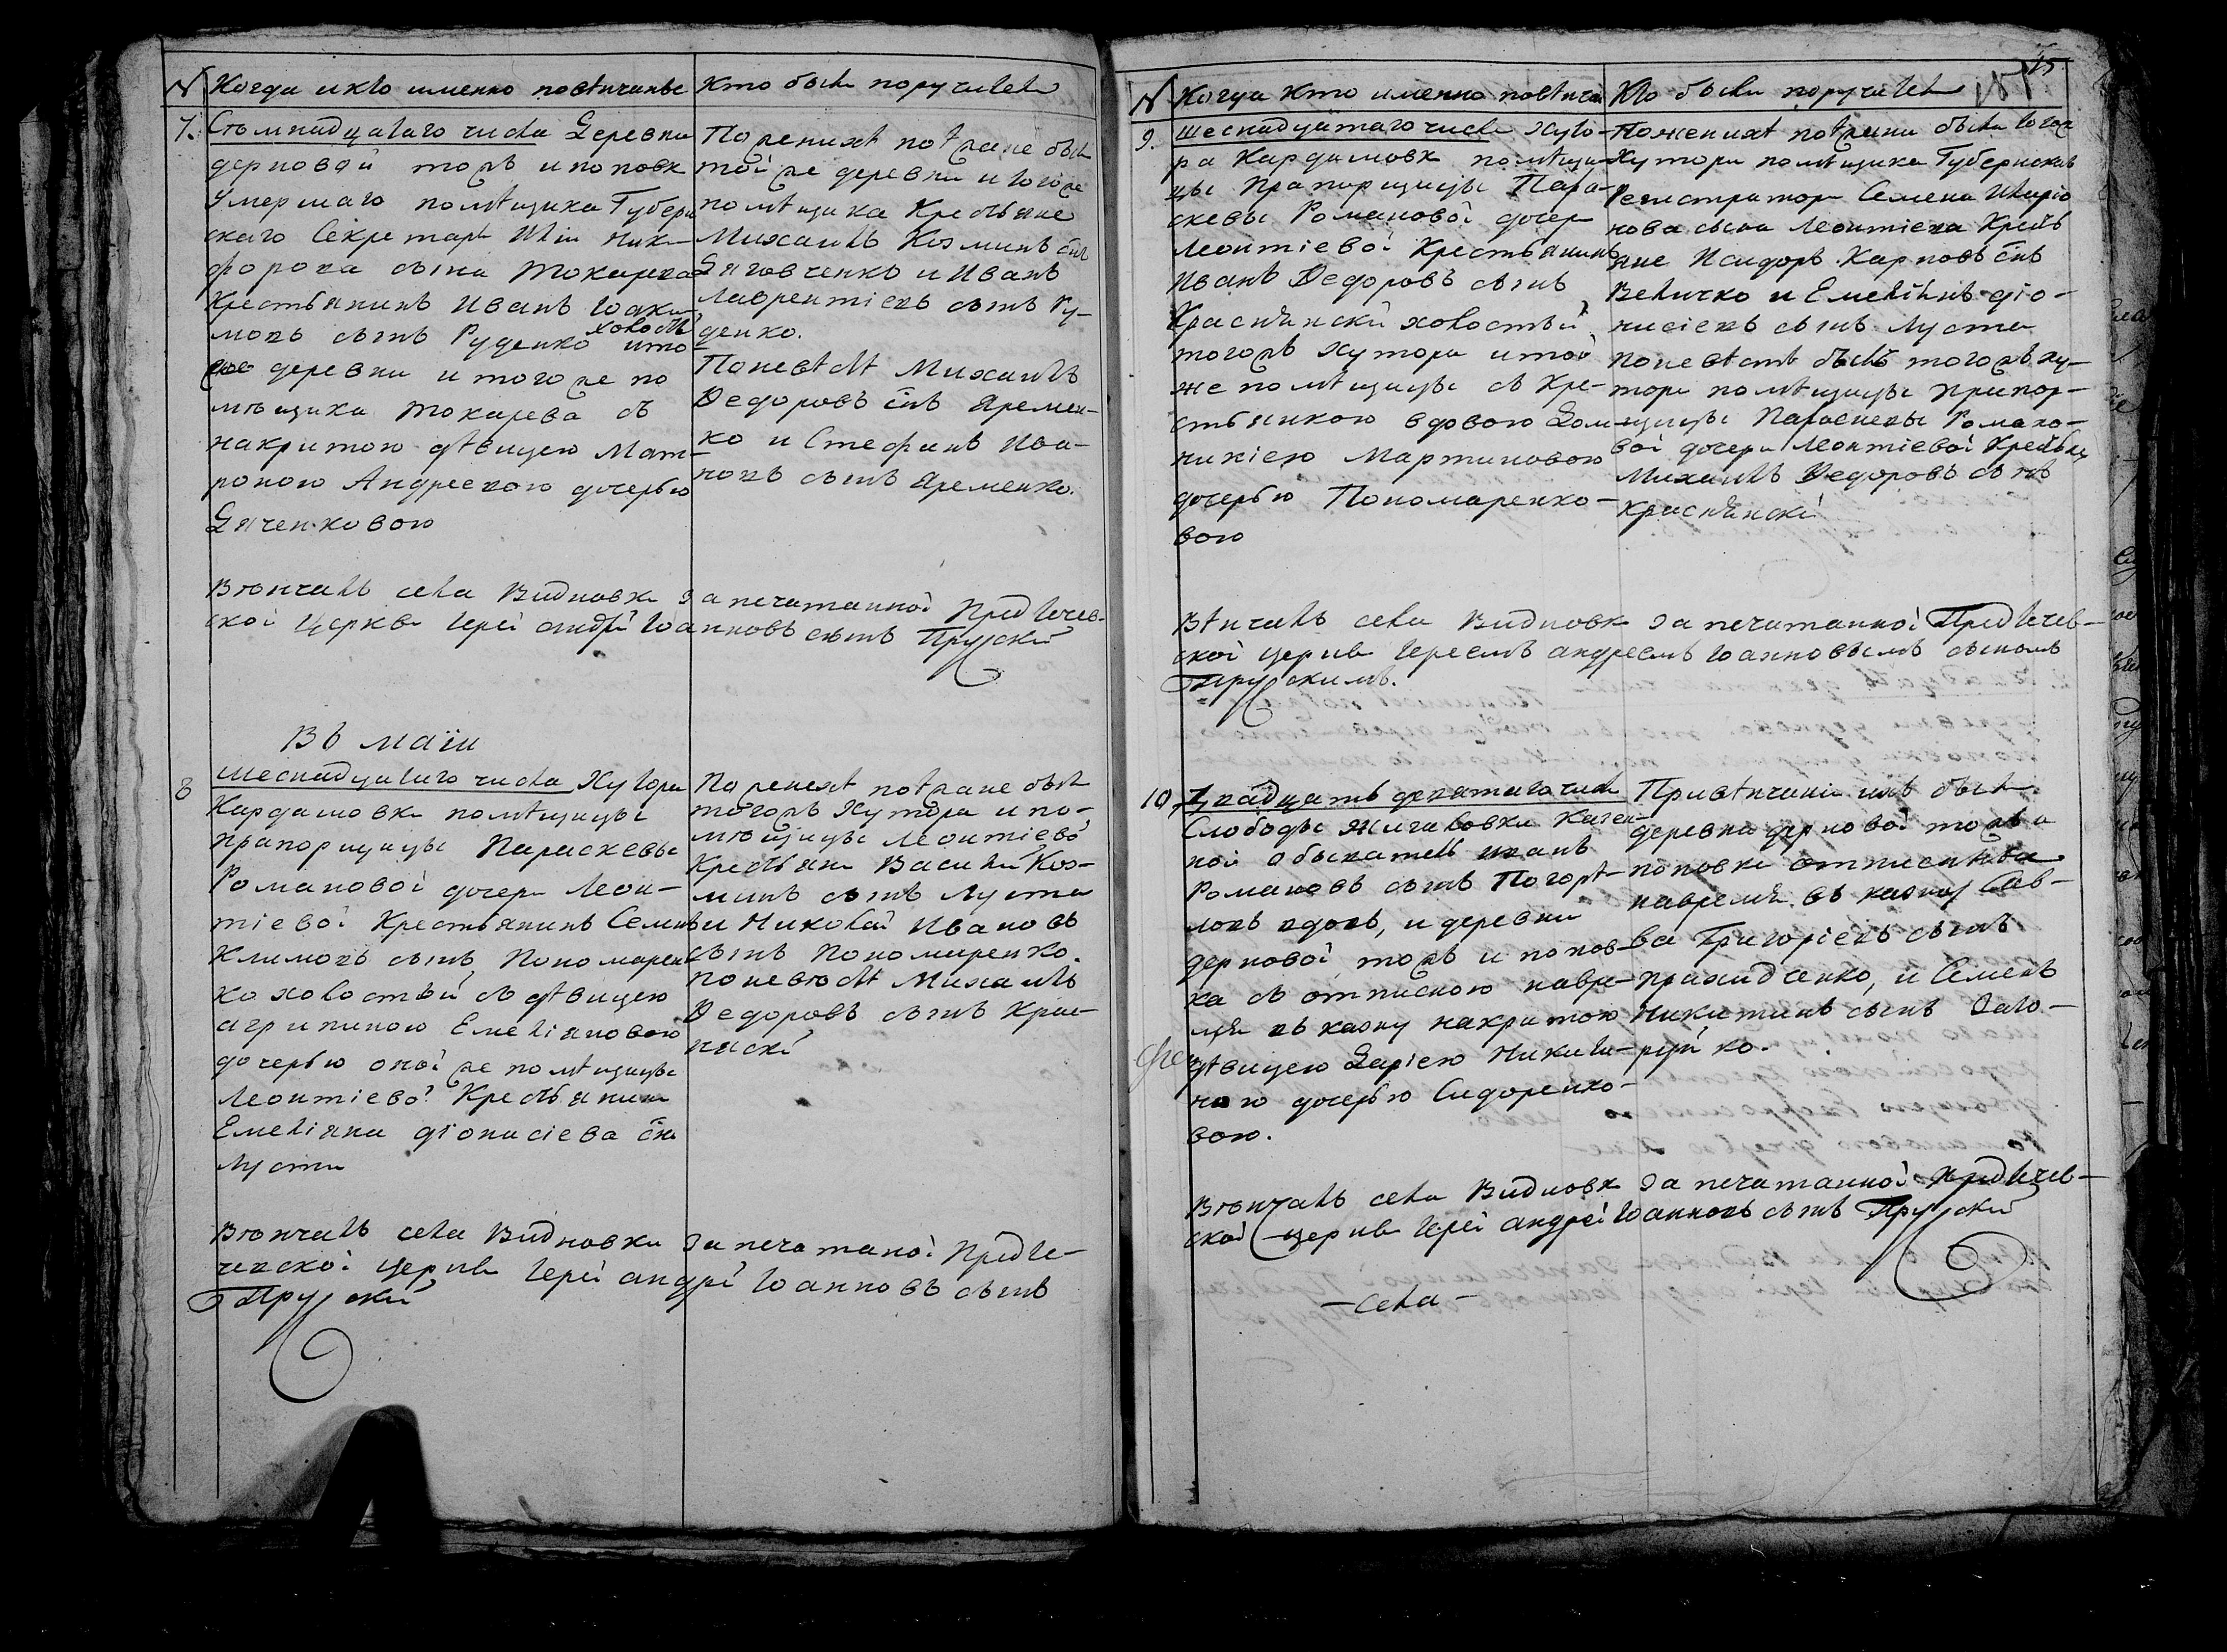 N Когда икто именно повѣнчанъ
7. Стомнадцатаго числа Деревни
дерновой тожъ и поповк
Умершаго помѣщика Губерн
скаго Секретаря Иліи Ники-
форова сына Токарева
Крестьянинъ Иванъ Іоаки-
мовъ сынъ Руденко холостъ ито
яже деревни и тогоже по
мѣщика Токарева съ
накритою дѣвицею Мат-
роною Андреевою дочерью
Дяченковою
Кто были поручители
По женихѣ потзане были
тойже деревни и тогоже
помѣщика Крестьяне
Михаилъ Козминъ сынъ
Дяговченко и Иванъ
Лаврентіевъ сынъ Ру-
денко.
По невѣстѣ Михаилъ
Ѳедоровъ снъ Яремен-
ко и Стефанъ Ива-
новъ сынъ Яременко.
Вѣнчалъ села Видновк запечатанной Предтечев-
ской Церкви Іерей андрей Іоанновъ сынъ Прускій
Въ маіи
8 Шеснадцатаго числа Хутора
Кардашовки помѣщицы
прапорщицы Параскевы
Романовой дочери Леон-
тіевой Крестьянинъ Семенъ
Климовъ сынъ Пономарен
ко холостый съ дѣвицею
агрипиною Емеліяновою
дочерью оной же помѣщицы
Леонтіевой Крестьянина
Емеліяна діонисіева сна
Лусты
По женихѣ потзане были
тогожъ Хутора и по-
мѣщицы Леонтіевой
Крестьяне Василій Коз-
минъ сынъ Луста
и Николай Ивановъ
сынъ Пономаренко.
по невѣстѣ Михаилъ
Ѳедоровъ сынъ Крас-
нянскій
Вѣнчалъ села Видновки запечатаной Предте-
чевской церкви Іерей андрей Іоанновъ сынъ
Прускій
N Когда Кто именно повѣнчанъ
9. шеснадцатаго числа Хуто-
ра Кардашовк помѣщи-
цы Прапорщицы Пара-
скевы Романовой дочери
Леонтіевой Крестьянинъ
Иванъ Ѳедоровъ сынъ
Краснянскій холостый
тогожъ хутора и той
же помѣщицы съ Кре-
стьянкою вдовою Дом-
никіею Мартиновою
дочерью Пономаренко-
вою
Кто были поручители
По женихѣ потзани были тогож
Хутора помѣщика Губернскаго
Регистратора Семена Иларіо
нова сына Леонтіева Кресть
яне Исидоръ Карповъ снъ
Величко и Емеліянъ діо-
нисіевъ сынъ Луста
по невѣстѣ былъ тогожъ ху-
тора помѣщицы прапор-
щицы Параскевы Романо-
вой дочери Леонтіевой Крестьян
Михаилъ Ѳедоровъ сынъ
Краснянскій
Вѣнчалъ села Видновк запечатанной Предтечев-
ской церкви Іереемъ андреемъ Іоанновымъ сыномъ
Прускимъ.
10 Двадцать девятаго числа
Слободы Жигаловки Казен-
ной обыватель иванъ
Романовъ сынъ Погорѣ-
ловъ вдовъ, и деревни
дерновой тожъ и попов-
ка съ отписною навре-
мя въ казну накритою
дѣвицею Даріею Никити-
ною дочерью Сидоренко-
вою.
При вѣнчаніи ихъ были
деревни дерновой тожъ и
поповки отписанны
навремя въ казну Сав-
ва Григоріевъ сынъ
приходченко, и Семенъ
Никитинъ сынъ Заго-
руйко.
Вѣнчалъ села Видновк запечатанной Предтечев-
ской церкви Іерей андрей Іоанновъ сынъ Прускій
— села —